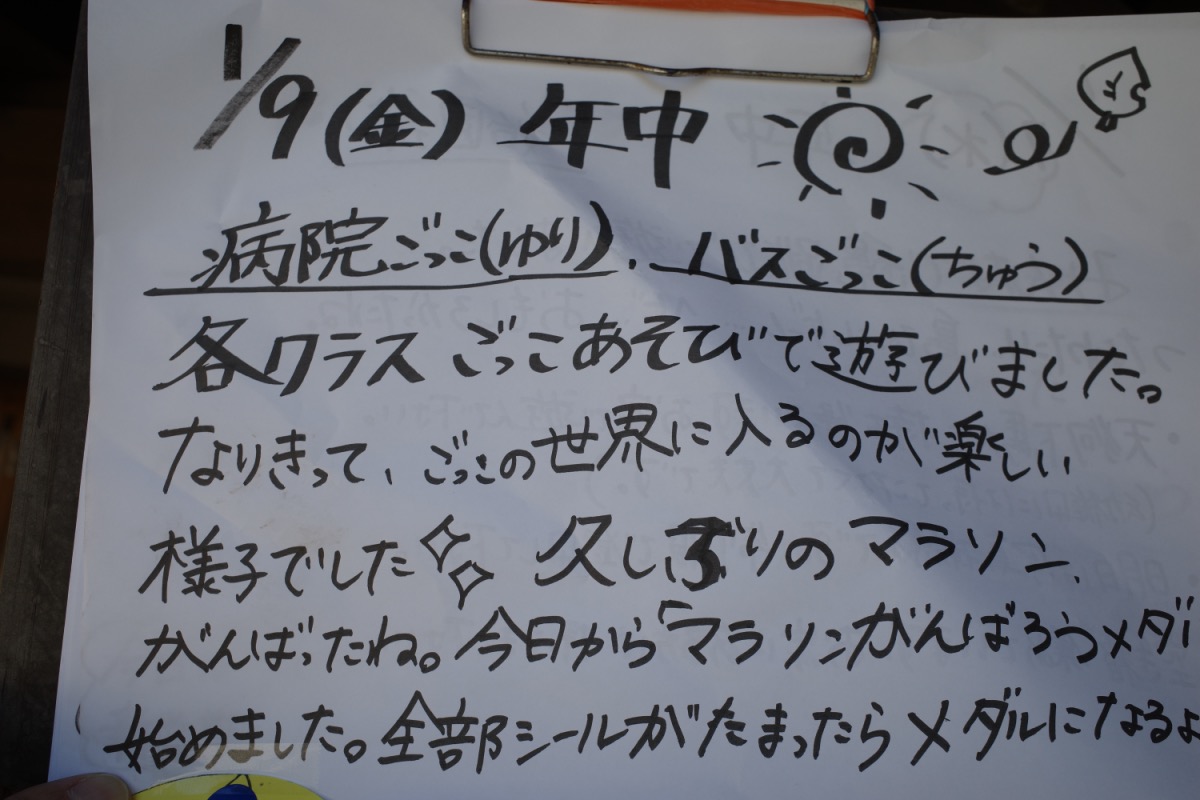 1/9(金) 年中
病院ごっこ(ゆり)、バスごっこ(ちゅう)
各クラスごっこあそびで遊びました。
なりきって、ごっこの世界に入るのが楽しい
様子でした 久しぶりのマラソン、
がんばったね。今日から「マラソンがんばろうメダ
始めました。全部シールがたまったらメダルになるよ